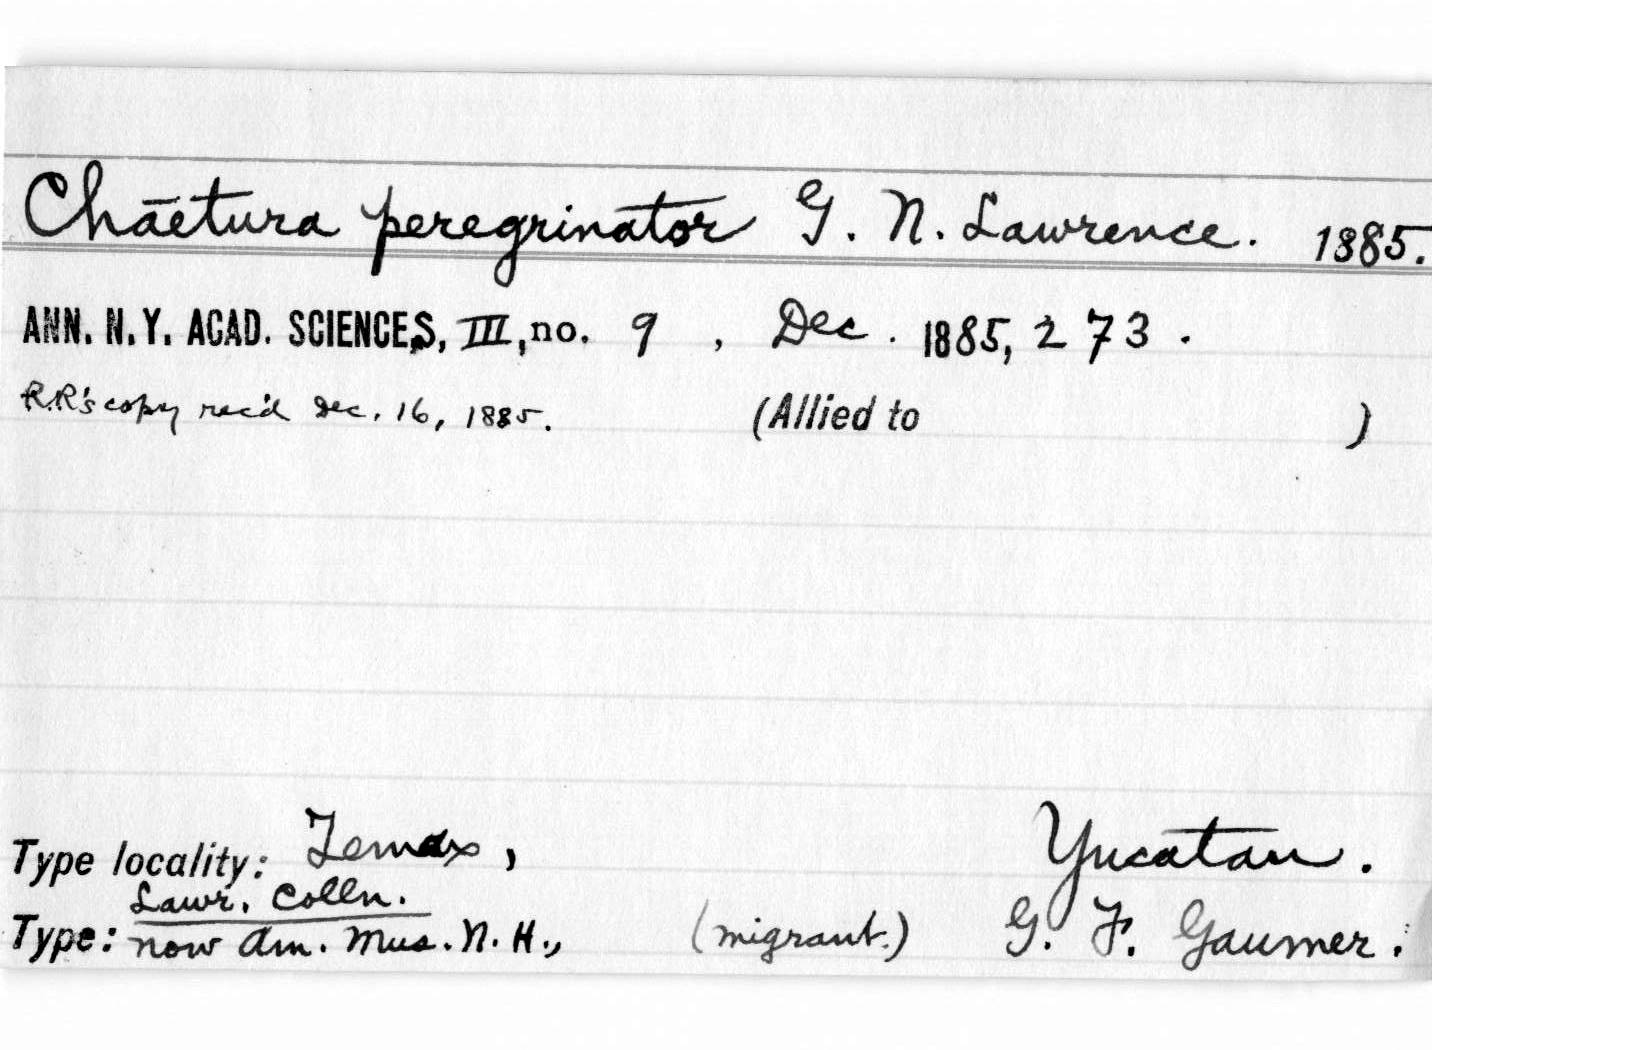 Chaetura peregrinator G. N. Lawrence. 1885.
ANN. N. Y. ACAD. SCIENCES, III, no. 9 , Dec. 1885, 273.
R.R's copy rec'd Dec. 16, 1885. (Allied to )
Type locality: Temax, Yucatan.
Lawr. Colln.
Type: now Am. Mus. N. H., (migrant.) G. F. Gaumer.